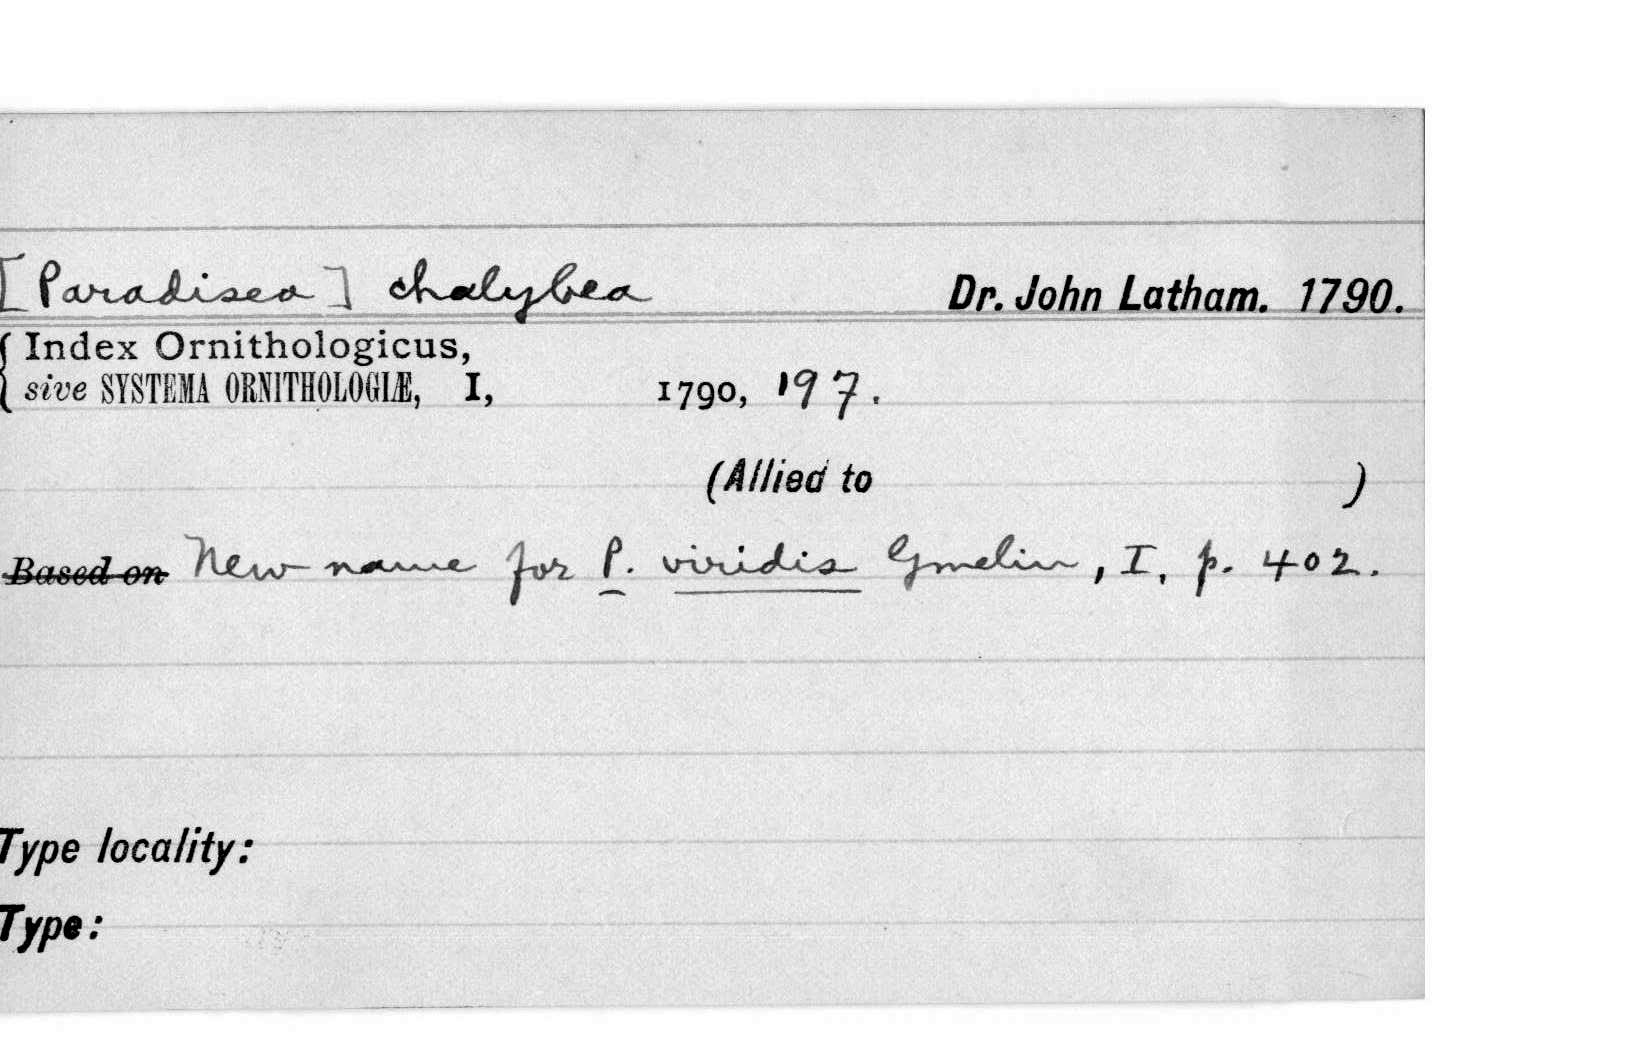 [Paradisea] chalybea Dr. John Latham. 1790.
{ Index Ornithologicus,
sive SYSTEMA ORNITHOLOGIÆ, I, 1790, 197.
(Allied to )
Based on New name for P. viridis Gmelin, I, p. 402.
Type locality:
Type: